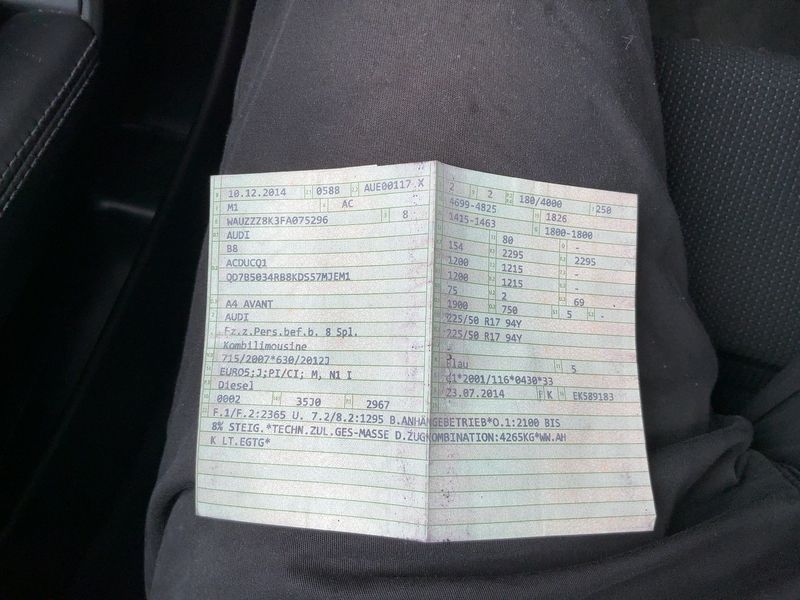 10.12.2014 0588 AUE00117 X
M1 AC
WAUZZZ8K3FA075296 8
AUDI
B8
ACDUCQ1
QD7B5034RB8KDS57MJEM1
A4 AVANT
AUDI
Fz.z.Pers.bef.b. 8 Spl.
Kombilimousine
715/2007*630/2012J
EURO5;J;PI/CI; M, N1 I
Diesel
0002 35J0 2967
2 2 180/4000 250
4699-4825 1826
1415-1463 1800-1800
80 -
154 2295 2295
1200 1215 -
1200 1215 -
75 2 69
1900 750 5 -
225/50 R17 94Y
225/50 R17 94Y
blau 5
e1*2001/116*0430*33
23.07.2014 K EK589183
F.1/F.2:2365 U. 7.2/8.2:1295 B.ANHÄNGEBETRIEB*O.1:2100 BIS
8% STEIG.*TECHN.ZUL.GES-MASSE D.ZUGKOMBINATION:4265KG*WW.AH
K LT.EGTG*